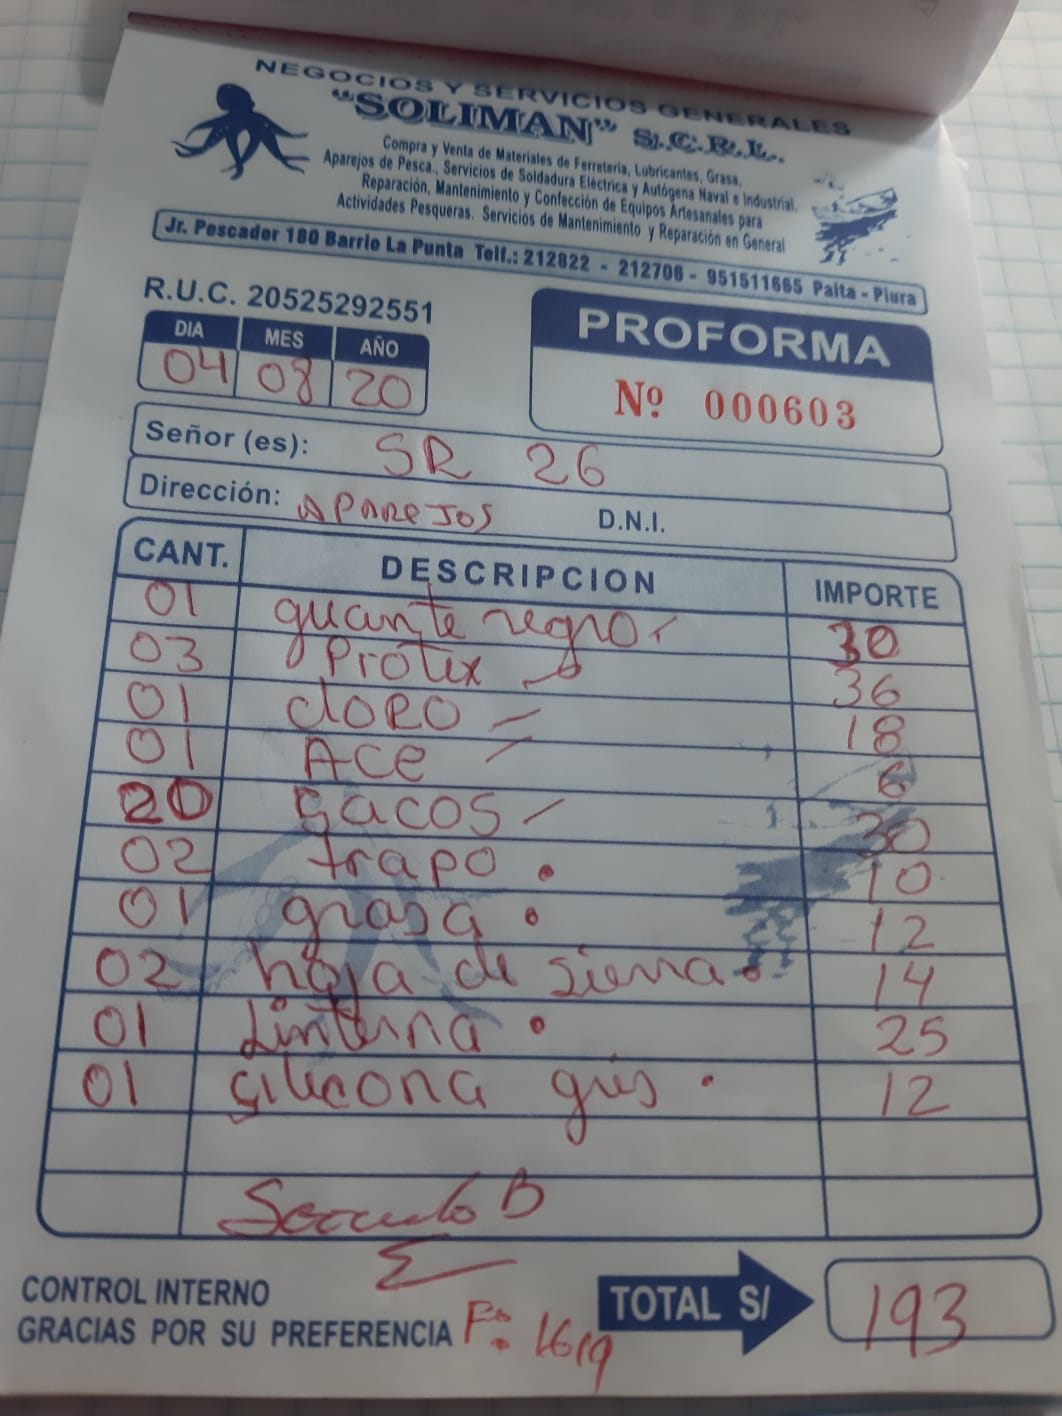 NEGOCIOS Y SERVICIOS GENERALES
"SOLIMAN" S.C.R.L.
Compra y Venta de Materiales de Ferreteria, Lubricantes, Grasa,
Aparejos de Pesca., Servicios de Soldadura Eléctrica y Autógena Naval e Industrial.
Reparación, Mantenimiento y Confección de Equipos Artesanales para
Actividades Pesqueras. Servicios de Mantenimiento y Reparación en General
Jr. Pescador 180 Barrio La Punta Telf.: 212822 - 212706 - 951511665 Paita - Piura
R.U.C. 20525292551
DIA MES AÑO
04 08 20
PROFORMA
Nº 000603
Señor (es): SR 26
Dirección: APAREJOS D.N.I.
CANT. DESCRIPCION IMPORTE
01 guante negro 30
03 Protex 36
01 cloro 18
01 Ace 6
20 sacos 30
02 trapo 10
01 grasa 12
02 hoja de sierra 14
01 Linterna 25
01 silicona gris 12
B
CONTROL INTERNO
GRACIAS POR SU PREFERENCIA F: 1619
TOTAL S/ 193